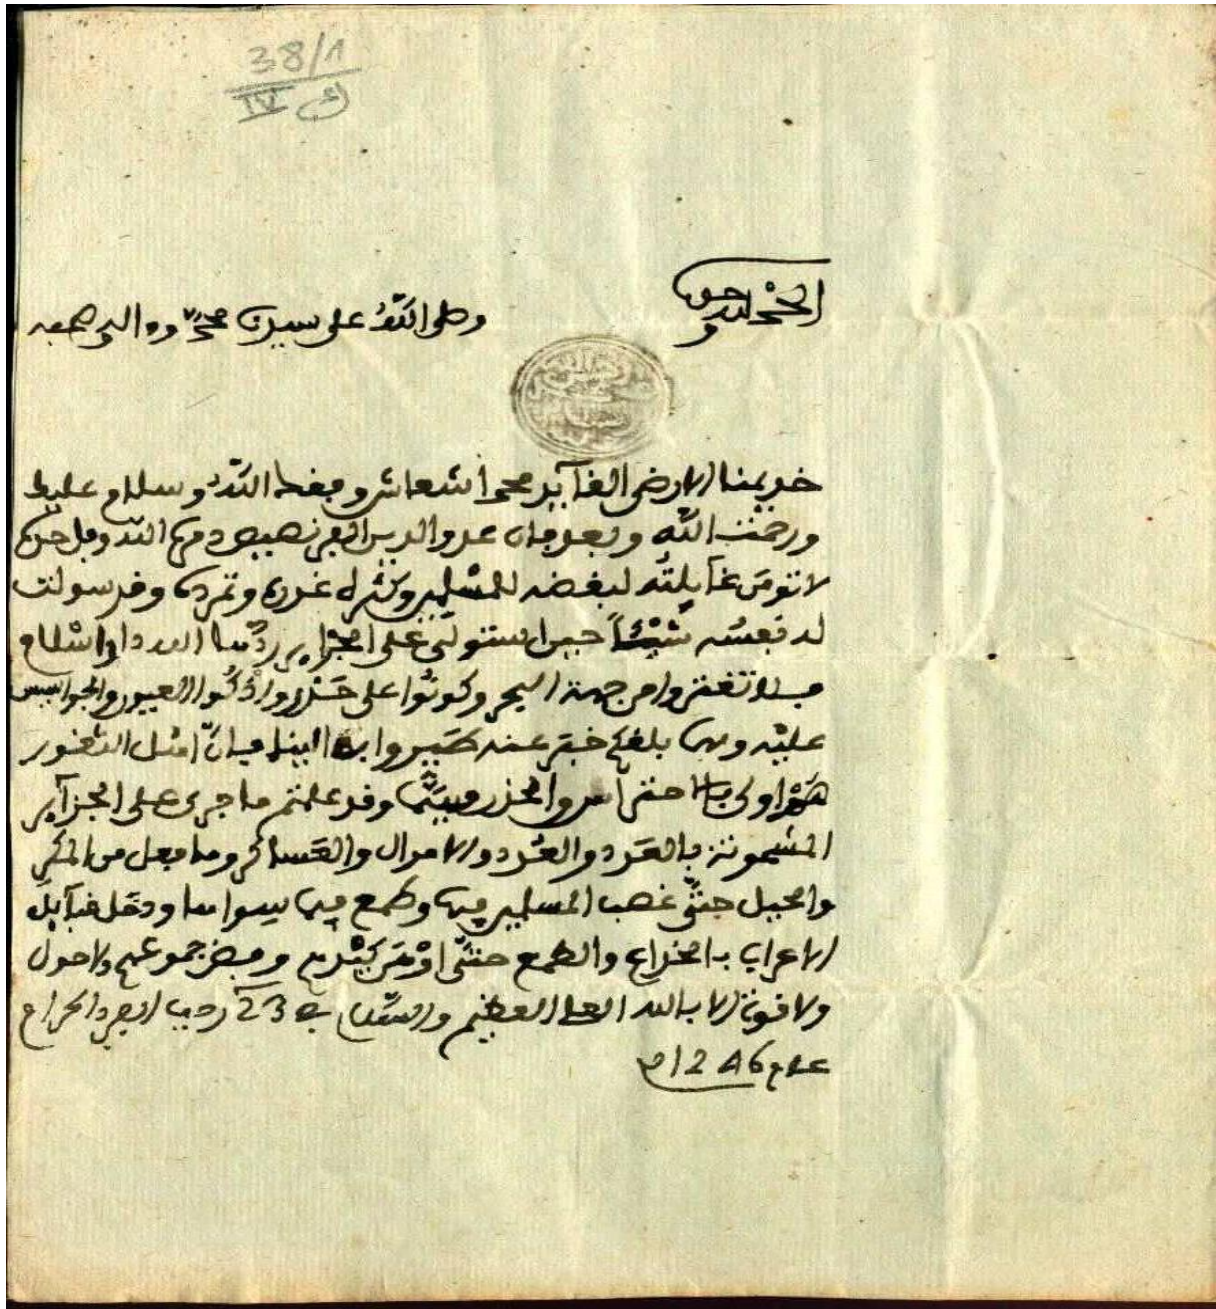 38/1
IV ك
الحمد لله وحده
وصلى الله على سيدنا محمد وءاله وصحبه
خديمنا الارضى القآيد محمد أشعاش وفقك الله وسلام عليك
ورحمت الله وبعد فان عدو الدين الفرنصيص دمره الله وفل حزبه
لا تومن غآيلته لبغضه للمسلمين وكثرة غدره وتمرده وقد سولت
له نفسه شيئاً حين استولى على الجزاير ردها الله دار اسلام
فلا تغتروا من جهة البحر وكونوا على حذر واذكوا العيون والجواسيس
عليه ومهما بلغكم خبر عنه طيروا به الينا فان امثل الثغور
هو اولى بالاحتراس والحذر وقد علمتم ما جرى على الجزآير
المشحونة بالعَدد والعُدد والاموال والعساكر وما فعل من المكر
والحيل حتى غصب المسلمين فيها وطمع فيما سواها ودخل قبآيل
الاعراب بالخداع والطمع حتى اوهن كيدهم وفض جموعهم ولا حول
ولا قوة الا بالله العلي العظيم والسلام في 23 رجب الفرد الحرام
عام 1246ه